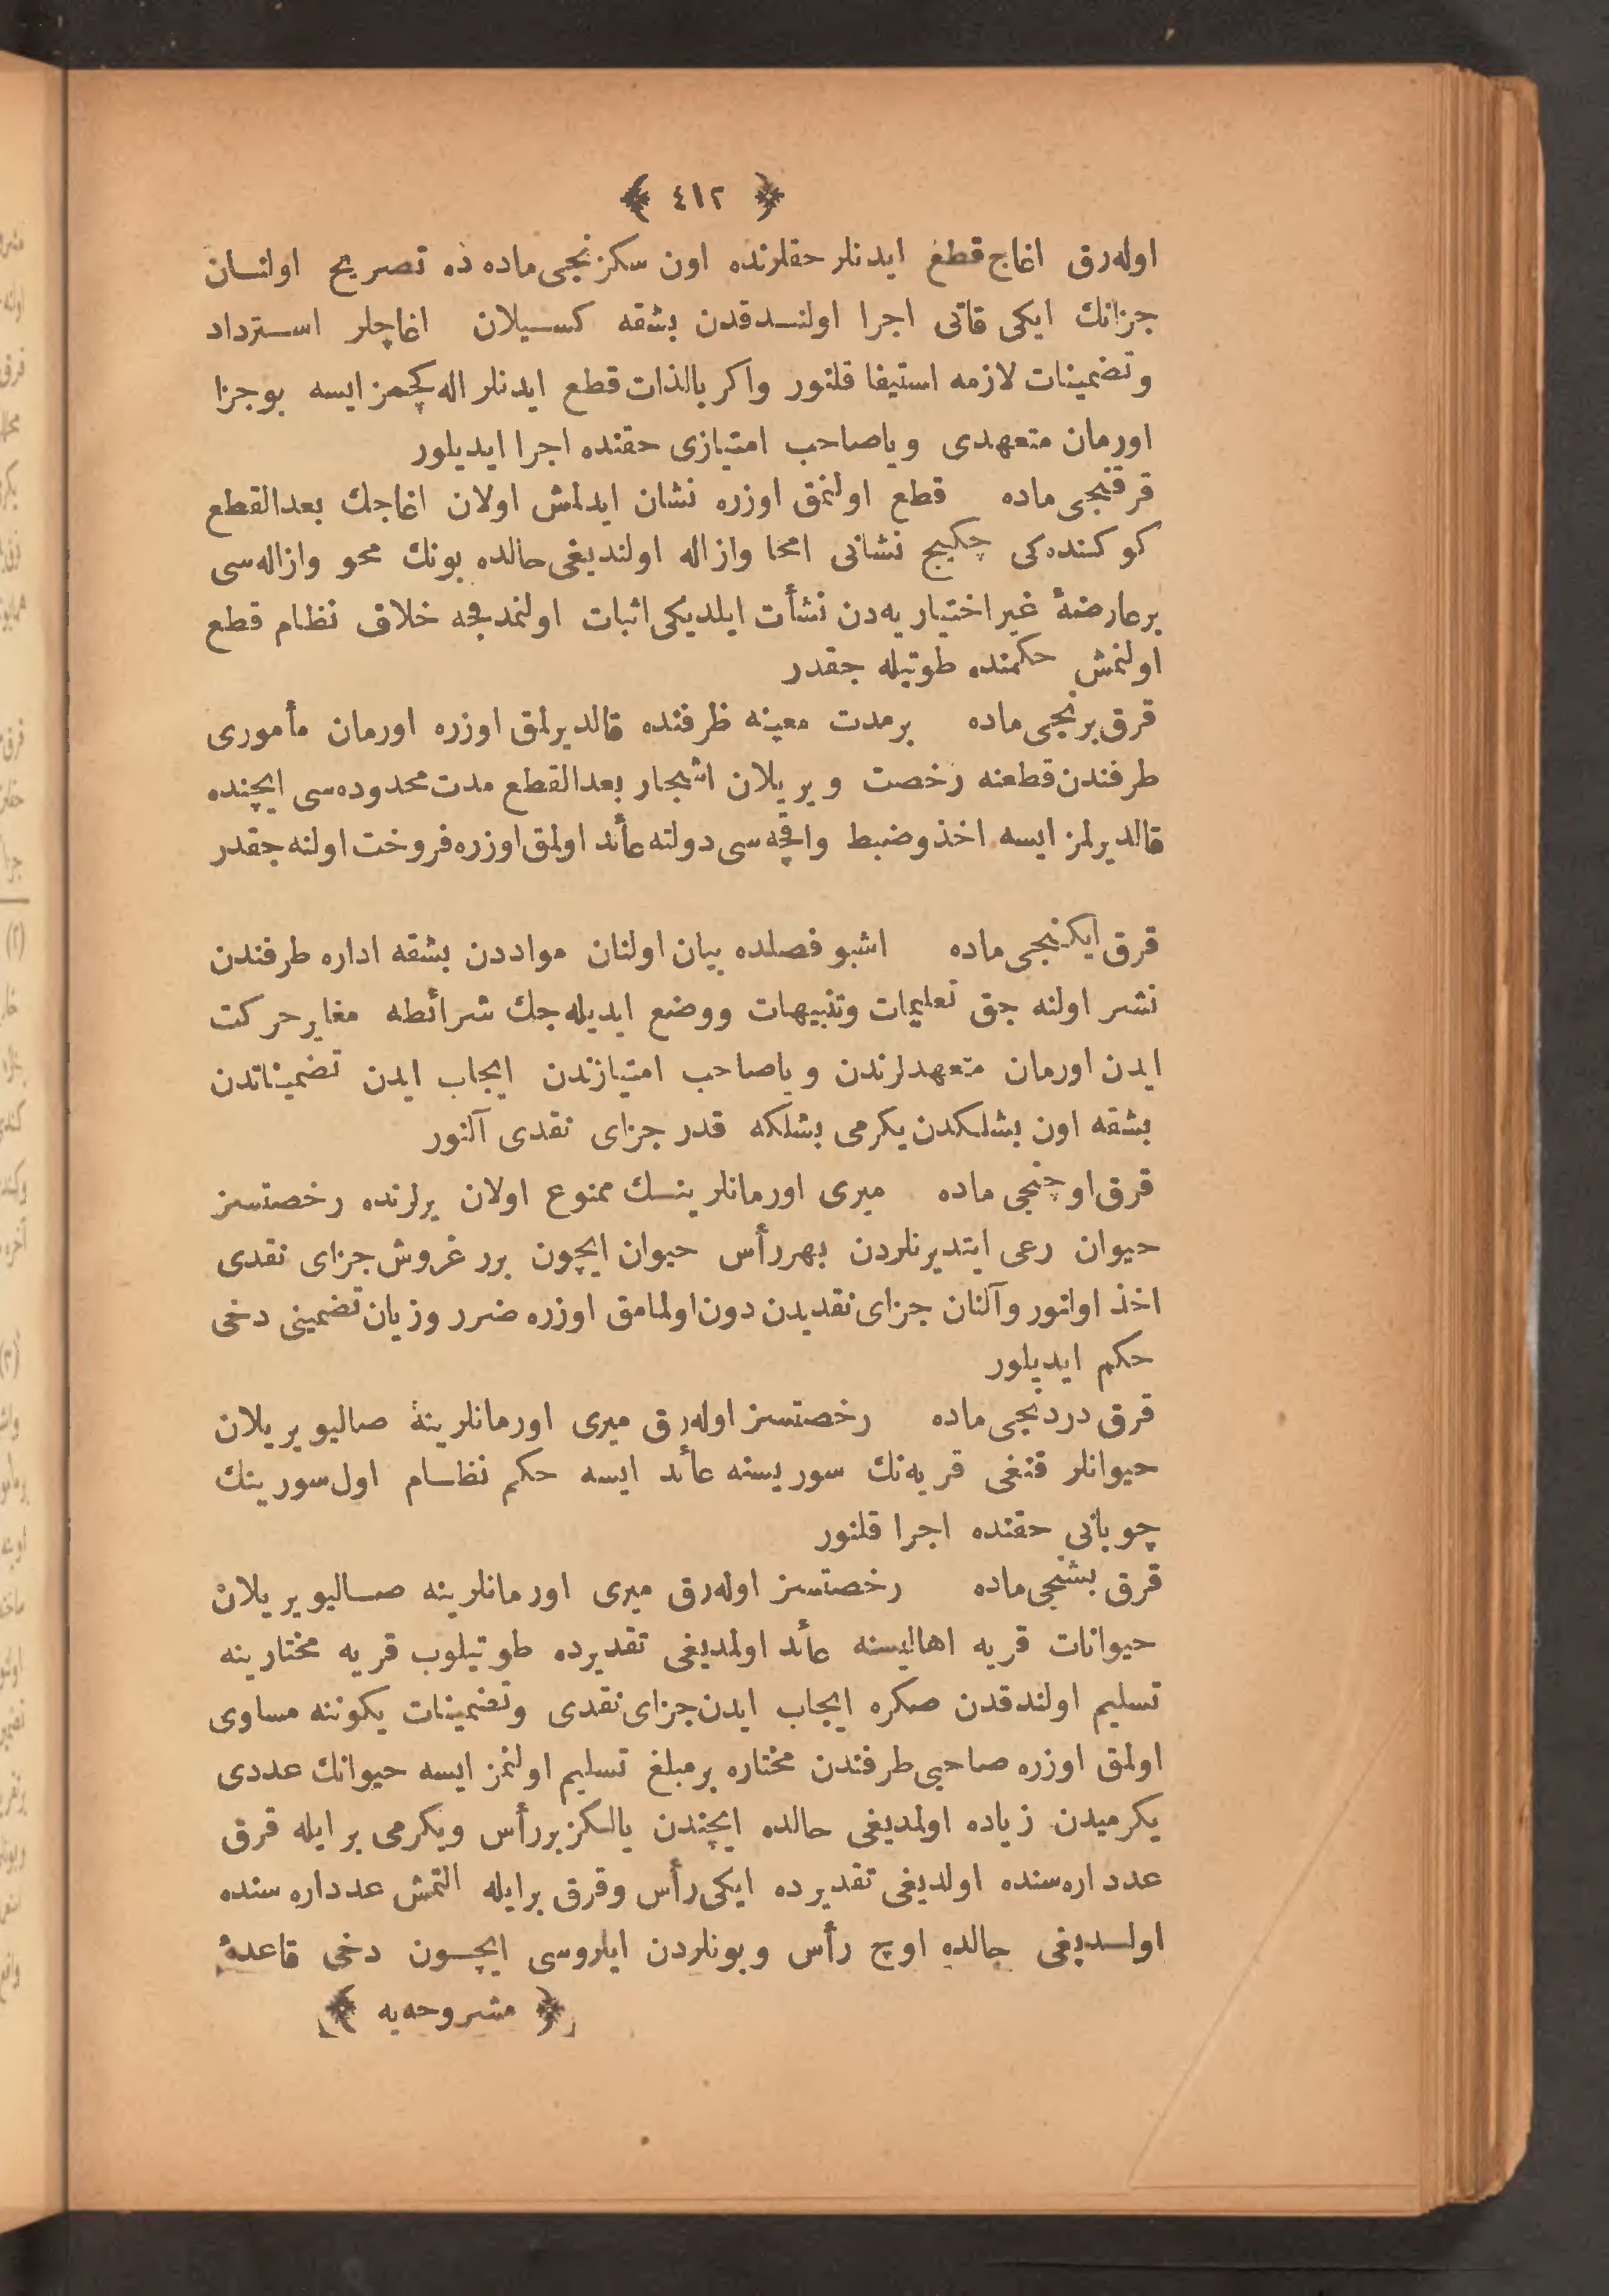 ﴿ ٤١٢ ﴾
اوله‌رق اغاج قطع ایدنلر حقلرنده اون سکزنجی ماده ده تصریح اولنـان
جزانك ایکی قاتی اجرا اولنـدقدن بشقه کسـیلان اغاچلر اسـترداد
وتضمینات لازمه استیفا قلنور واکر بالذات قطع ایدنلر اله کچمز ایسه بوجزا
اورمان متعهدی ویاصاحب امتیازی حقنده اجرا ایدیلور
قرقنجی ماده قطع اولنمق اوزره نشان ایدلمش اولان اغاجك بعدالقطع
کوکنده‌کی چکیج نشانی امحا وازاله اولندیغی حالده بونك محو وازاله‌سی
برعارضهٔ غیراختیاریه‌دن نشأت ایلدیکی اثبات اولنمدقجه خلاف نظام قطع
اولنمش حکمنده طوتیله جقدر
قرق برنجی ماده برمدت معینه ظرفنده قالدیرلمق اوزره اورمان مأموری
طرفندن قطعنه رخصت ویریلان اشجار بعدالقطع مدت محدوده‌سی ایچنده
قالدیرلمز ایسه اخذ وضبط واقچه‌سی دولته عائد اولمق اوزره فروخت اولنه جقدر
قرق ایکنجی ماده اشبو فصلده بیان اولنان مواددن بشقه اداره طرفندن
نشر اولنه جق تعلیمات وتنبیهات ووضع ایدیله‌جك شرائطه مغایر حرکت
ایدن اورمان متعهدلرندن ویاصاحب امتیازندن ایجاب ایدن تضمیناتدن
بشقه اون بشلـکدن یکرمی بشلکه قدر جزای نقدی آلنور
قرق اوچنجی ماده میری اورمانلرینـك ممنوع اولان یرلرنده رخصتسز
حیوان رعی ایتدیرنلردن بهررأس حیوان ایچون برر غروش جزای نقدی
اخذ اولنور وآلنان جزای نقدیدن دون اولمامق اوزره ضرر وزیان تضمینی دخی
حکم ایدیلور
قرق دردنجی ماده رخصتسز اوله‌رق میری اورمانلرینه صالیویریلان
حیوانلر قنغی قریه‌نك سوریسنه عائد ایسه حکم نظـام اول سورینك
چوبانی حقنده اجرا قلنور
قرق بشنجی ماده رخصتسز اوله‌رق میری اورمانلرینه صـالیویریلان
حیوانات قریه اهالیسنه عائد اولمدیغی تقدیرده طوتیلوب قریه مختارینه
تسلیم اولندقدن صکره ایجاب ایدن جزای نقدی وتضمینات یکوننه مساوی
اولمق اوزره صاحبی طرفندن مختاره برمبلغ تسلیم اولنمز ایسه حیوانك عددی
یکرمیدن زیاده اولمدیغی حالده ایچندن یالـکز بررأس ویکرمی بر ایله قرق
عدد اره‌سنده اولدیغی تقدیرده ایکی رأس وقرق برایله التمش عدداره سنده
اولـدیغی حالده اوچ رأس وبونلردن ایلروسی ایچـون دخی قاعدهٔ
﴿ مشروحه‌یه ﴾